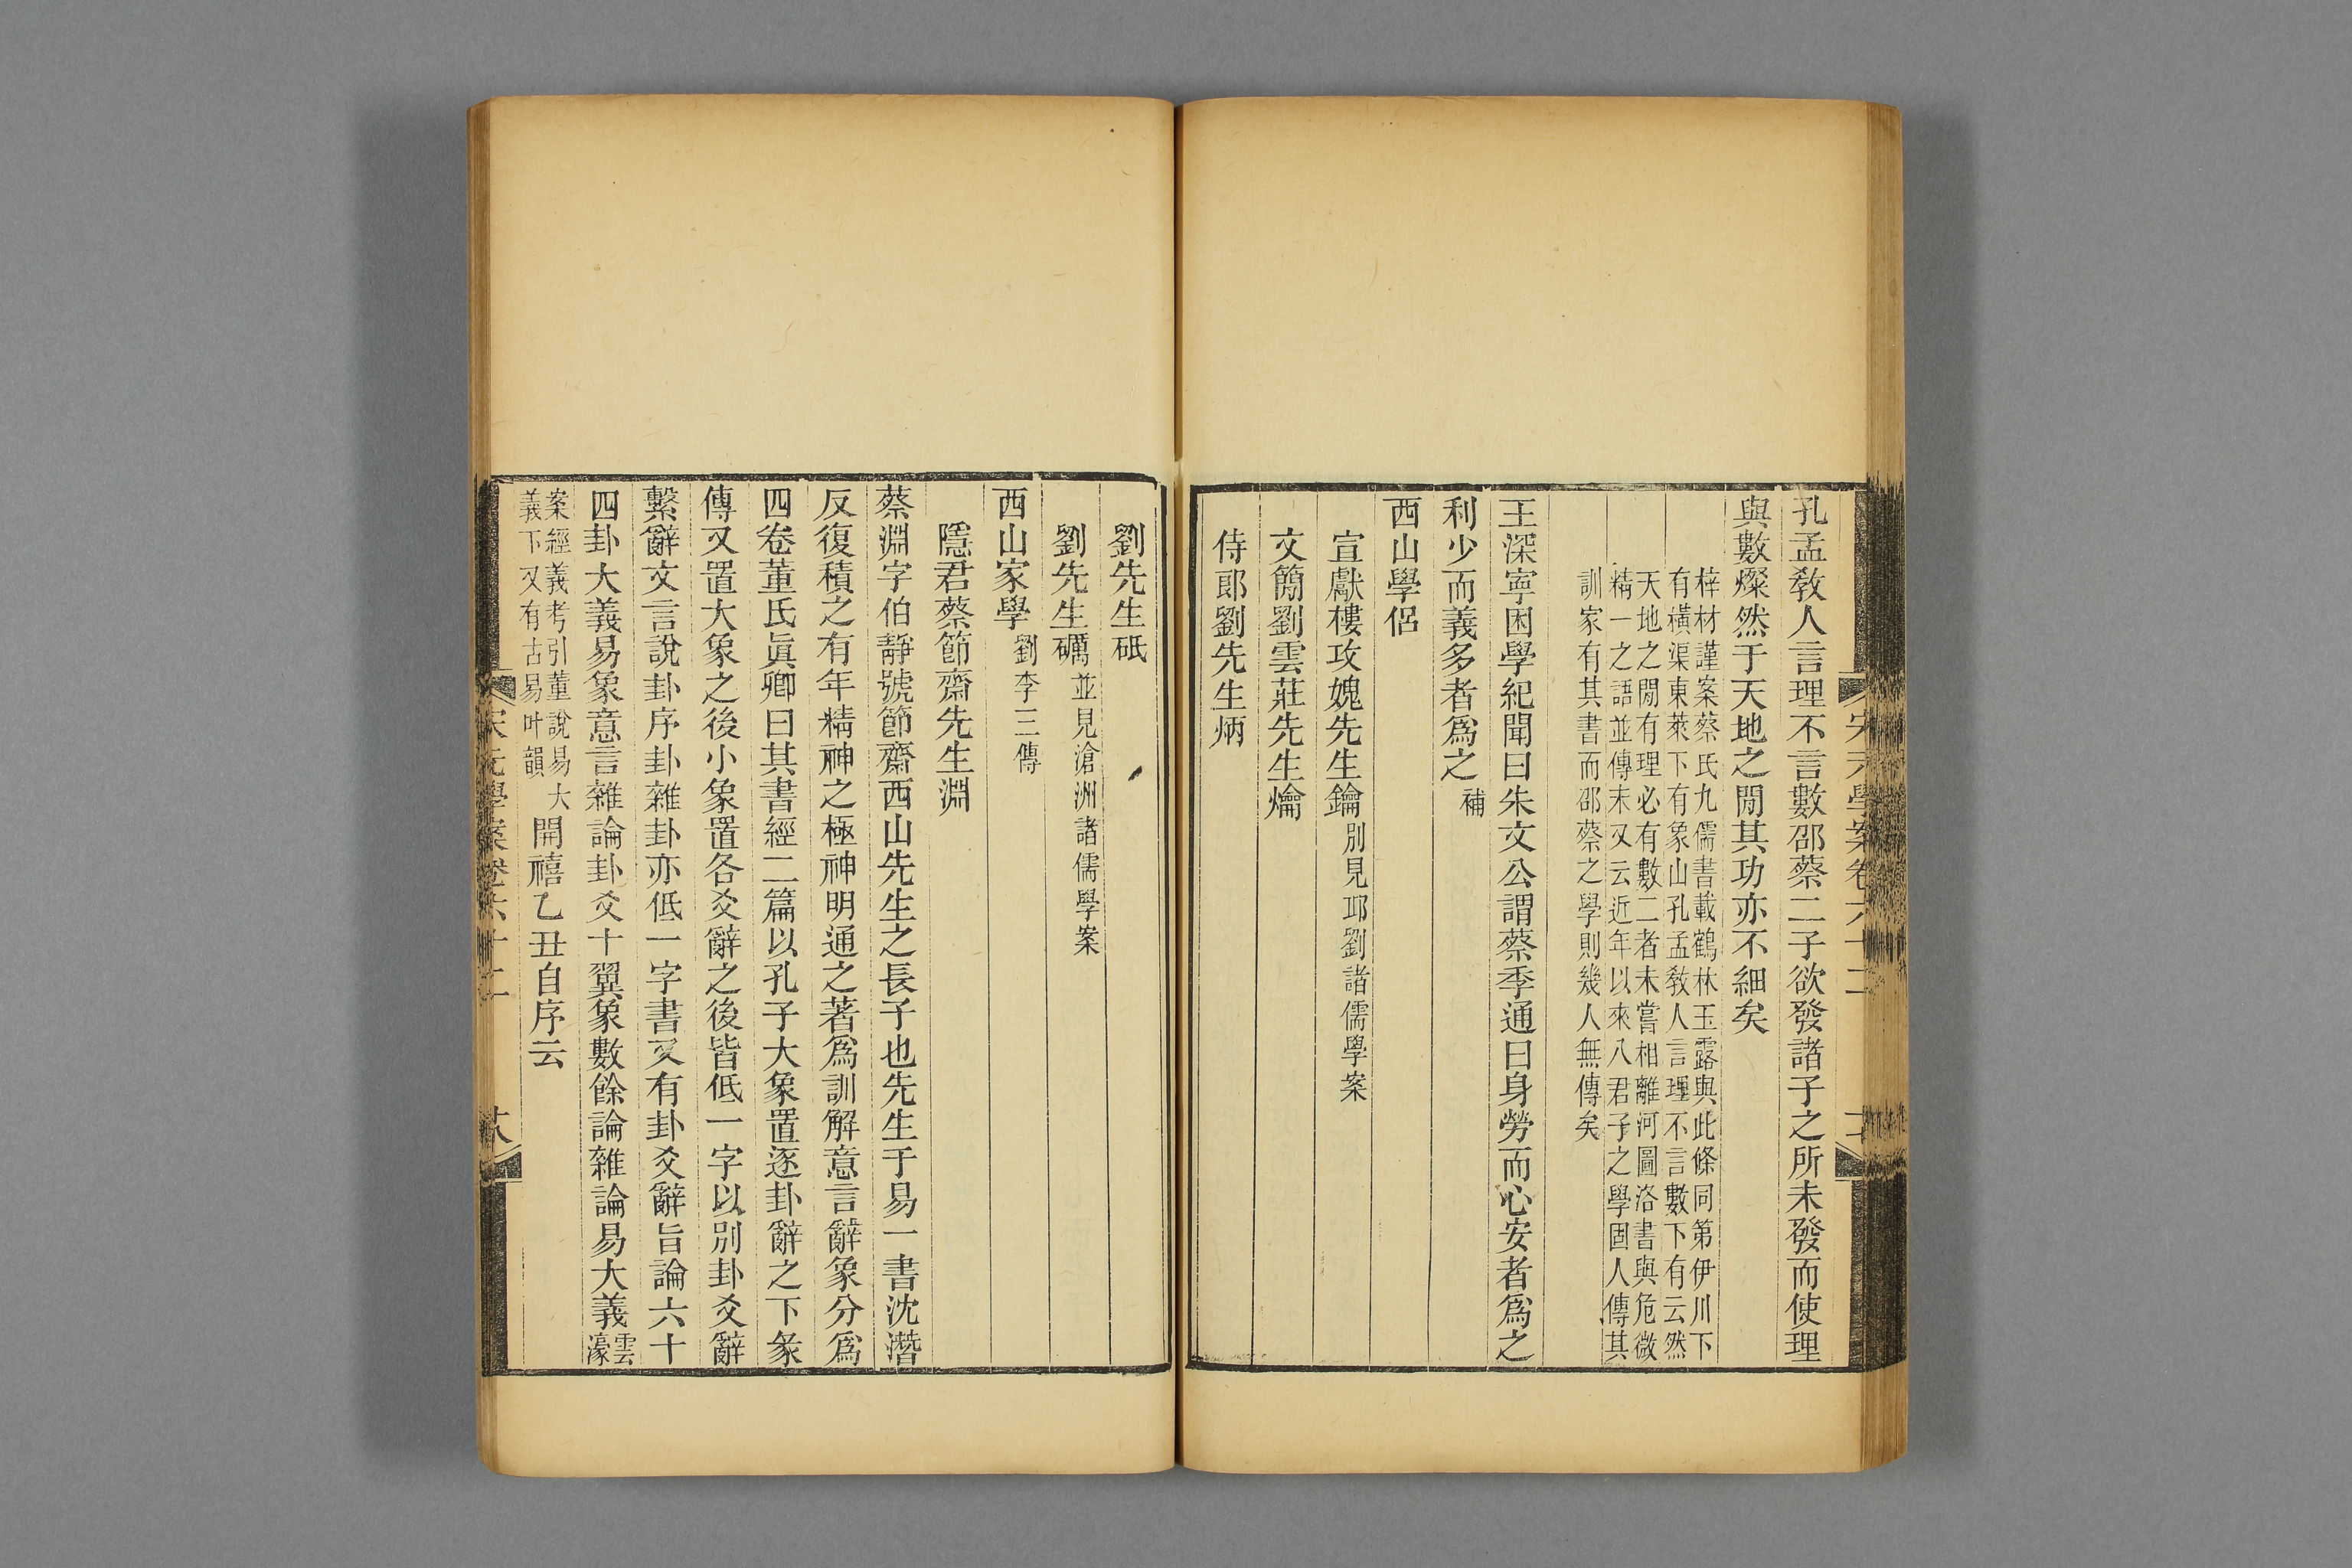 孔孟敎人言理不言數邵蔡二子欲發諸子之所未發而使理
與數燦然于天地之閒其功亦不細矣
梓材謹案蔡氏九儒書載鶴林玉露與此條同第伊川下
有橫渠東萊下有象山孔孟敎人言理不言數下有云然
天地之閒有理必有數二者未嘗相離河圖洛書與危微
精一之語並傳末又云近年以來八君子之學固人傳其
訓家有其書而邵蔡之學則幾人無傳矣
王深寧困學紀聞曰朱文公謂蔡季通曰身勞而心安者爲之
利少而義多者爲之補
西山學侶
宣獻樓攻媿先生鑰別見邱劉諸儒學案
文簡劉雲莊先生爚
侍郎劉先生炳
劉先生砥
劉先生礪並見滄洲諸儒學案
西山家學劉李三傳
隱君蔡節齋先生淵
蔡淵字伯靜號節齋西山先生之長子也先生于易一書沈潛
反復積之有年精神之極神明通之著爲訓解意言辭象分爲
四卷董氏眞卿曰其書經二篇以孔子大象置逐卦辭之下彖
傳又置大象之後小象置各爻辭之後皆低一字以別卦爻辭
繫辭文言說卦序卦雜卦亦低一字書又有卦爻辭旨論六十
四卦大義易象意言雜論卦爻十翼象數餘論雜論易大義雲濠
案經義考引董說易大
義下又有古易叶韻
開禧乙丑自序云
宋元學案卷六十二